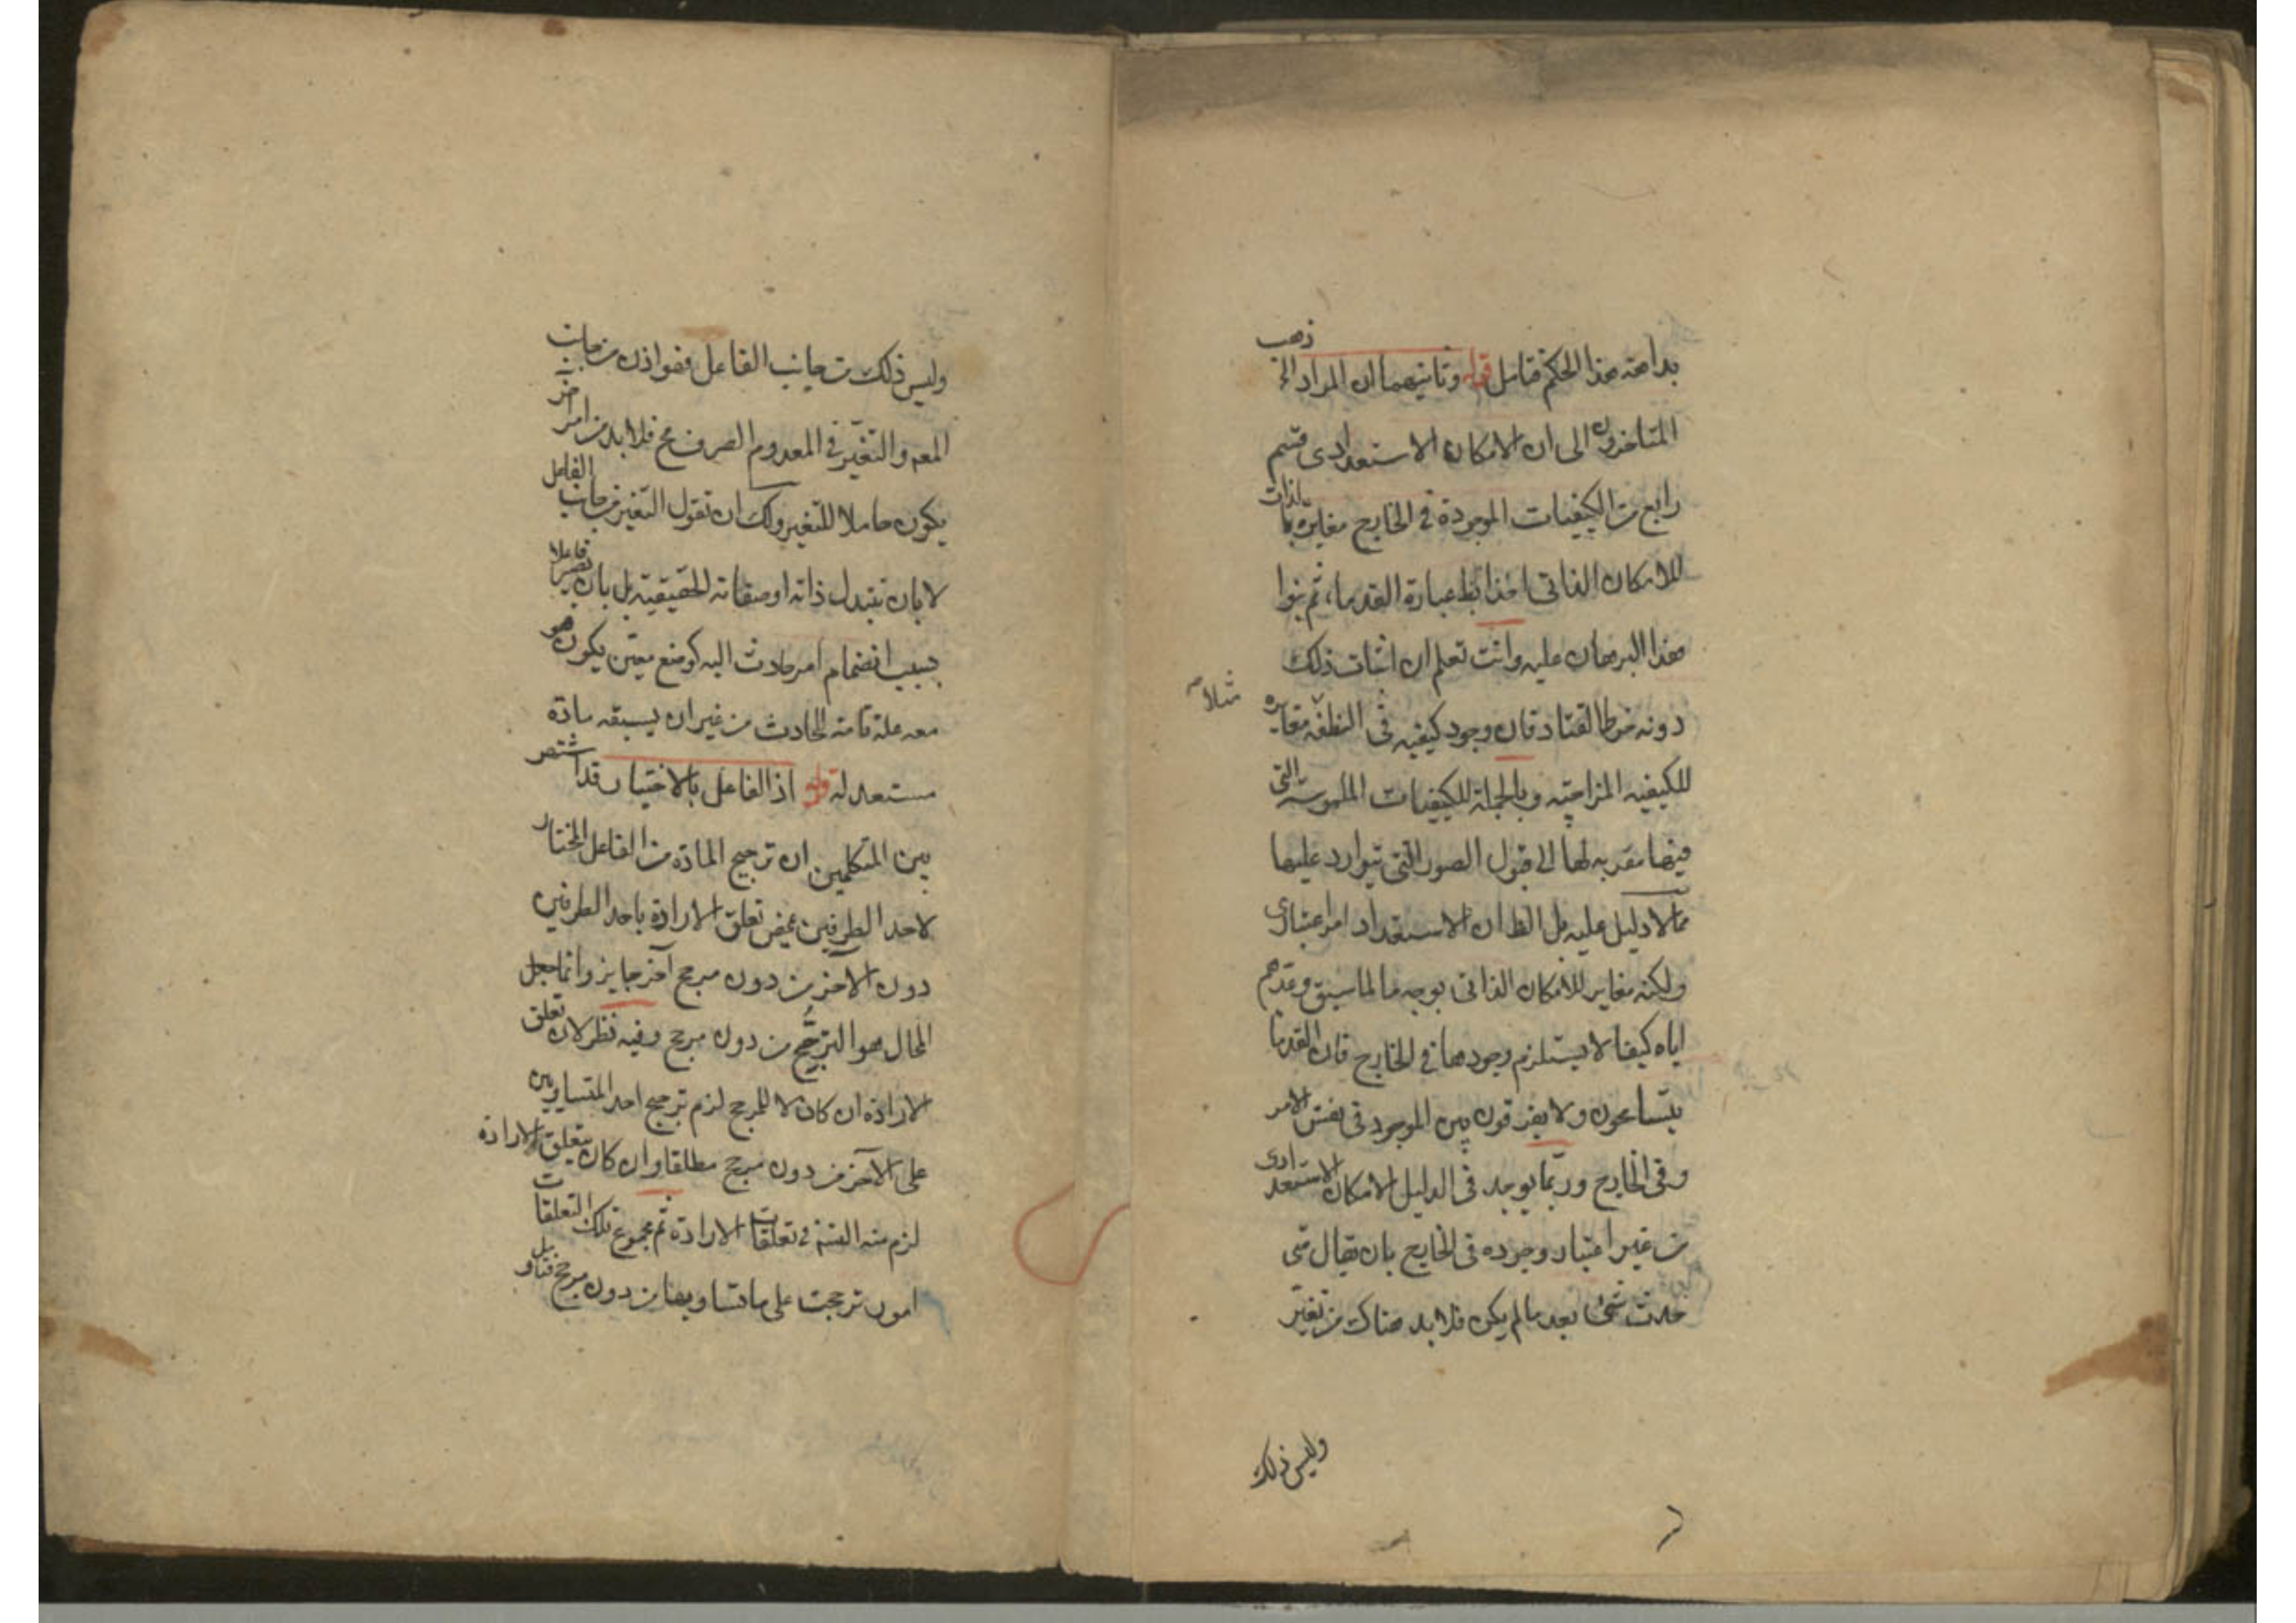 بداهة هذا الحكم فتامل قوله وثانيهما ان المراد الخ ذهب
المتاخرون الى ان الامكان الاستعدادى قسم
رابع من الكيفيات الموجودة فى الخارج مغايرة بالذات
للامكان الذاتى اخذا بظ عبارة القدماء ثم بنوا
هذا البرهان عليه وانت تعلم ان اثبات ذلك
دونه خرط القتاد فان وجود كيفيه فى النطفة مغايرة
مثلا
للكيفيه المزاجيه وبالجملة للكيفيات الملموسة التى
فيها مقربه لها الى قبول الصور التى تتوارد عليها
مما لا دليل عليه بل الظ ان الاستعداد امر اعتبارى
ولكنه مغاير للامكان الذاتى بوجه ما لما سبق وعدهم
اياه كيفا لا يستلزم وجودها فى الخارج فان القدما
يتسامحون ولا يفرقون بين الموجود فى نفس الامر
وفى الخارج وربما يوجد فى الدليل الامكان الاستعدادى
من غير اعتبار وجوده فى الخارج بان يقال متى
حدث شئ بعد ما لم يكن فلا بد هناك من تغير
وليس ذلك
وليس ذلك من جانب الفاعل فهو اذن من جانب
المعم والتغير فى المعدوم الصرف مح فلا بد من امر اخر
يكون حاملا للتغير ولك ان تقول التغير من جانب الفاعل
لا بان تتبدل ذاته او صفاته الحقيقيه بل بان يصير فاعلا
بسبب انضمام امر حادث اليه كوضع معين يكون هو
معه علة تامة للحادث من غير ان يسبقه مادة
مستعدله قوله اذ الفاعل بالاختيار قد اشتهر
بين المتكلمين ان ترجيح المادة من الفاعل المختار
لاحد الطرفين بمحض تعلق الارادة باحد الطرفين
دون الآخر من دون مرجح آخر جايز وانما جعل
المحال هو الترجح من دون مرجح وفيه نظر لان تعلق
الارادة ان كان لا لمرجح لزم ترجيح احد المتساويين
على الآخر من دون مرجح مطلقا وان كان بتعلق الارادة
لزم منه التس فى تعلقات الارادة ثم مجموع تلك التعلقات
امور ترجحت على ما تساويها من دون مرجح